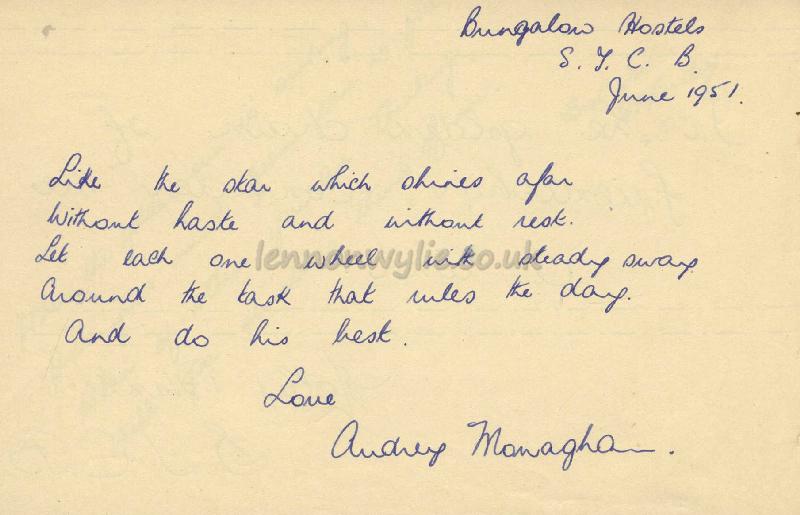 Bungalow Hostels
S. T. C. B.
June 1951.
Like the star which shines afar
Without haste and without rest.
Let each one wheel with steady sway
Around the task that rules the day.
And do his best.
Love
Audrey Monaghan.
lennonwylie.co.uk